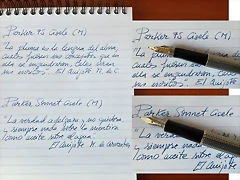 Parker 95 Cisele (M)
"La pluma es la lengua del alma,
cuales fueren los conceptos que en
ella se engendraron, tales serán
sus escritos". El Quijote M. de C.
Parker Sonnet Cisele (M)
"La verdad adelgaza y no quiebra,
y siempre anda sobre la mentira
como aceite sobre el agua".
El Quijote M. de Cervantes
Parker 95 Cisele (M)
"La pluma es la
cuales fueren los
ella se engendraron,
sus escritos". El Quijote
Parker Sonnet Cisele
"La verdad
y siempre anda
como aceite sobre el
El Quijote